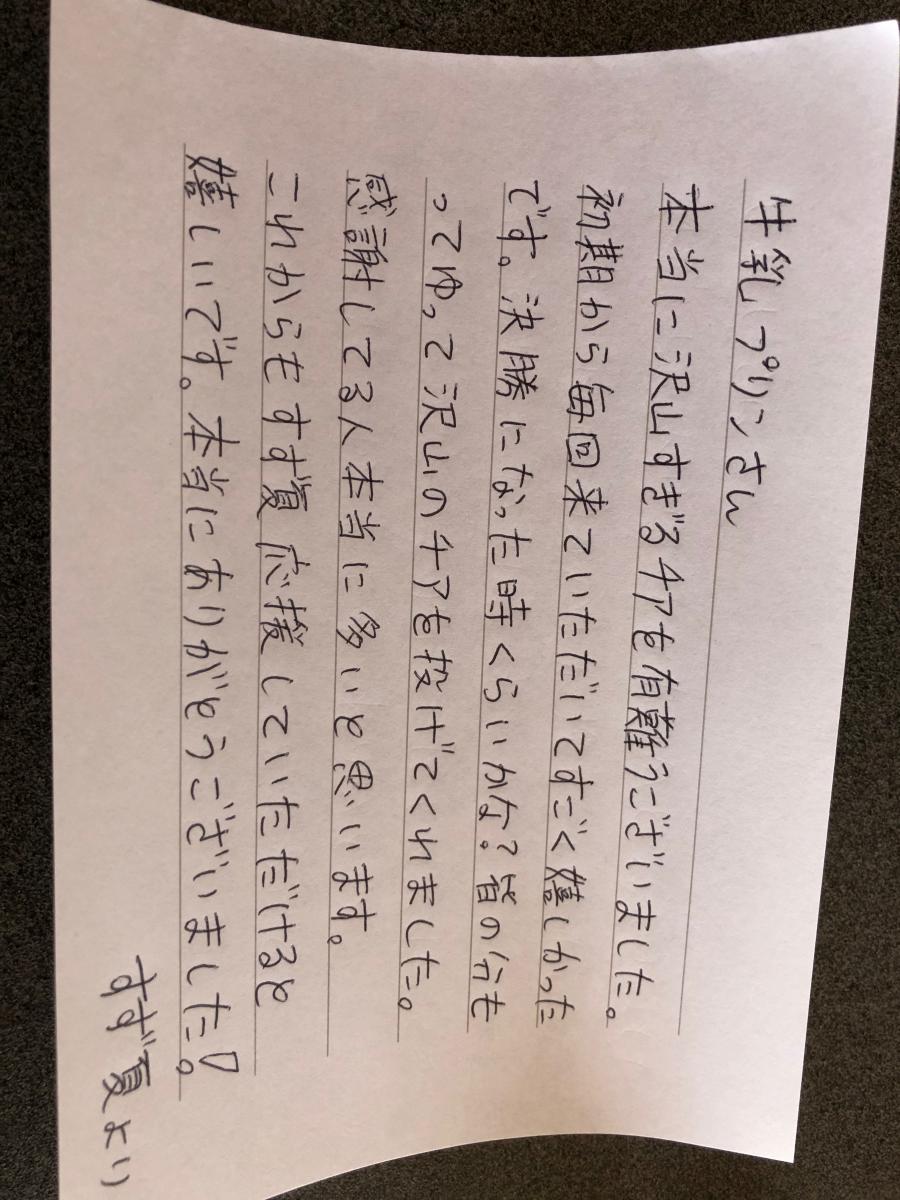 牛乳プリンさん
本当に沢山すぎるチアを有難うございました。
初期から毎回来ていただいてすごく嬉しかった
です。決勝になった時くらいかな?皆の分も
ってゆって沢山のチアを投げてくれました。
感謝してる人本当に多いと思います。
これからもすず夏応援していただけると
嬉しいです。本当にありがとうございました!。
すず夏より